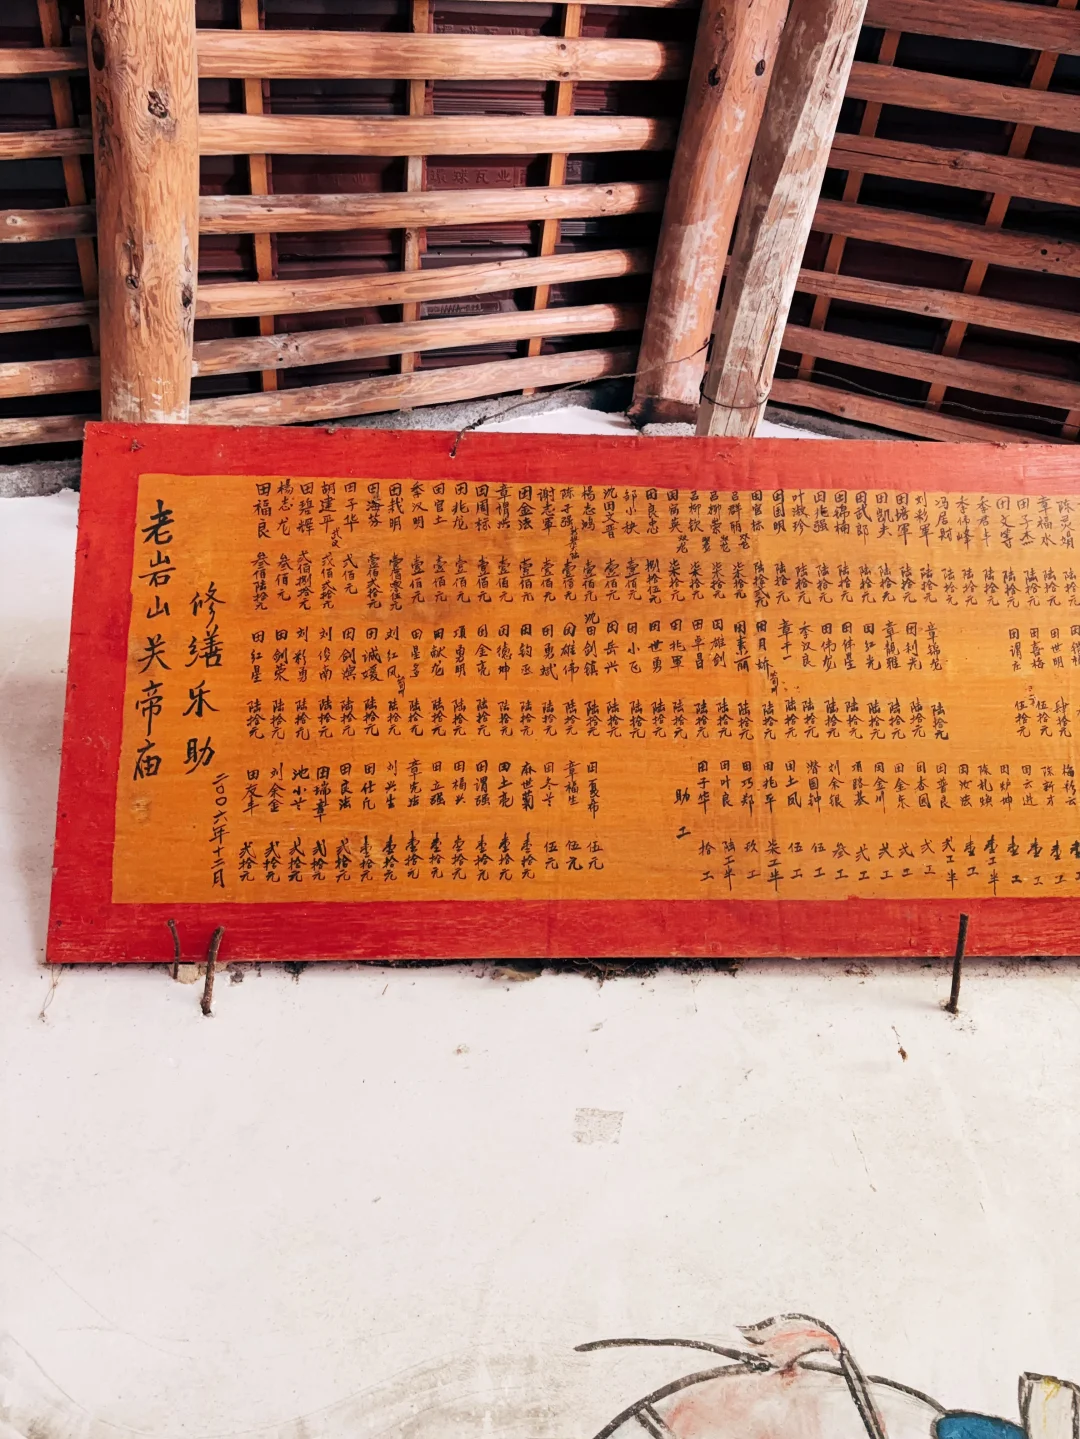 老岩山关帝庙
修缮乐助
二〇〇六年十二月
田福良 叁佰陆拾元
杨志龙 叁佰元
田碧辉 贰佰捌拾元
胡建平 贰佰贰拾元
田子华 贰佰元
田海芬 壹佰贰拾元
田我明
李汉明 壹佰元
田官土 壹佰元
田兆龙 壹佰元
田周标 壹佰元
章增洪 壹佰元
田金法 壹佰元
谢志军 壹佰元
陈子强 壹佰元
杨志鸿 壹佰元
沈田文晋 壹佰元
邹小扶 壹佰元
田良忠 捌拾伍元
柒拾元
吕柳钦 柒拾元
吕柳荣 柒拾元
吕群丽 柒拾元
田官标
田国明 陆拾元
叶淑珍 陆拾元
田兆强 陆拾元
田锦楠 陆拾元
田武郎 陆拾元
田凯夫 陆拾元
田培军 陆拾元
刘彩军 陆拾元
冯居财 陆拾元
李伟峰 陆拾元
李君丰 陆拾元
田文军 陆拾元
田子杰 陆拾元
章福水 陆拾元
陈灵娟 陆拾元
田红星 陆拾元
田剑荣 陆拾元
刘彩勇 陆拾元
刘俊南 陆拾元
田剑 陆拾元
田诚媛 陆拾元
刘红凤 陆拾元
田星多 陆拾元
田献龙 陆拾元
项勇明 陆拾元
田金亮 陆拾元
田德坤 陆拾元
田钧丞 陆拾元
田勇斌 陆拾元
田雄伟 陆拾元
沈田剑镇 陆拾元
田岳兴 陆拾元
田小飞 陆拾元
田世勇 陆拾元
田兆军 陆拾元
田卓昌 陆拾元
田雄剑 陆拾元
田素丽 陆拾元
田月娇 陆拾元
章十一 陆拾元
李汉良 陆拾元
田伟龙 陆拾元
田锋 陆拾元
田红光 陆拾元
章韵雅 陆拾元
田利光 陆拾元
章锦龙 陆拾元
田谓
田喜 伍拾元
田世明 肆拾元
田友丰 贰拾元
刘余金 贰拾元
池小芒 贰拾元
田瑞章 贰拾元
田良法 贰拾元
田仕凡 壹拾元
刘兴出 壹拾元
章克法 壹拾元
田立强 壹拾元
田楊兴 壹拾元
田谓强 壹拾元
田土亮 壹拾元
麻世菊 壹拾元
田冬芒 伍元
章福生 伍元
田夏布 伍元
助工
田于华 拾工
田叶良 陆工半
田巧郑 玖工
田兆平 柒工半
田土凤 伍工
潜国钟 伍工
刘余银 叁工
项路基 贰工
田金川 贰工
田金东 贰工
田香园 贰工
田普良 贰工半
田汝法 壹工
陈礼焕 壹工半
田炉坤 壹工
田云进 壹工
陈新方 壹工
梅彩云 壹工
环球瓦业